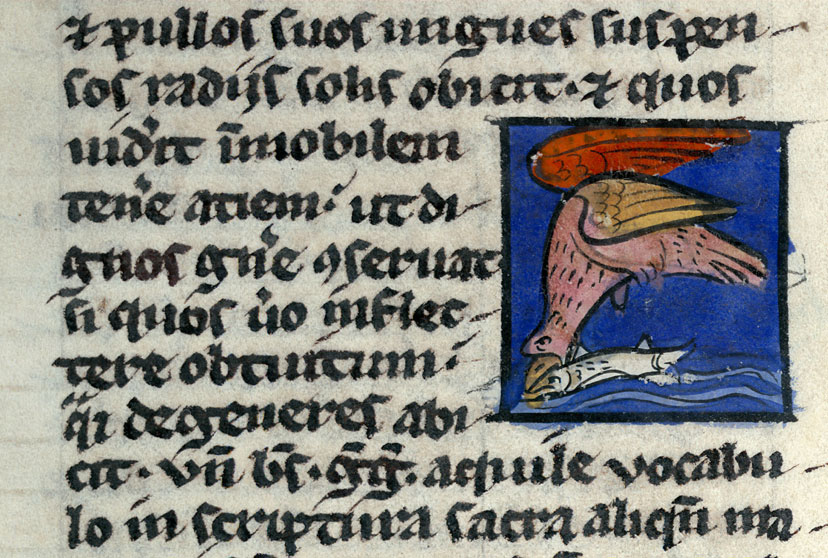 ⁊ pullos suos ungues suspen-
sos radijs solis obicit· ⁊ quos
uid̾it īmobilem
ten̾e aciem· ut di-
gnos gn̾e ꝯseruat
si quos u̾o inflec-
tere obtutum·
q̄i degeneres abi-
cit· vn̄ bs̄· gͥgͥ· aquile vocabu-
lo in scriptura sacra aliqn̄ ma-